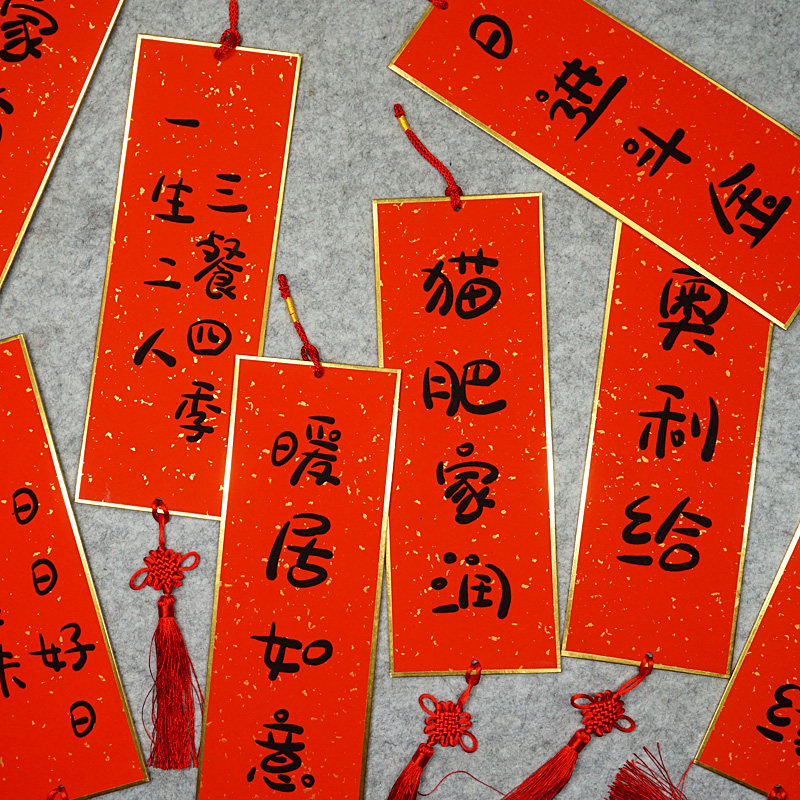 家
日进斗金
三餐四季
一生二人
猫肥家润
奥利给
暖居如意
日日好日